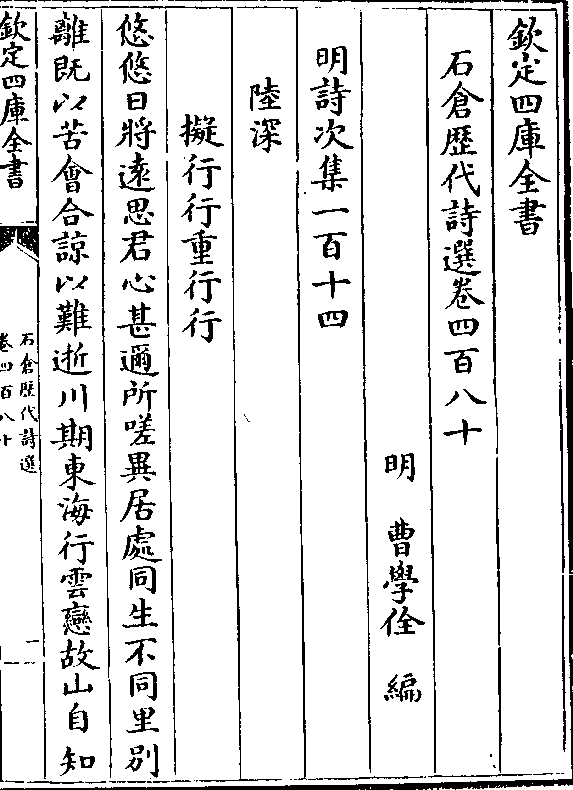 欽定四庫全書
石倉歷代詩選卷四百八十
明 曹學佺 編
明詩次集一百十四
陸深
擬行行重行行
悠悠日將遠思君心甚邇所嗟異居處同生不同里別
離既以苦會合諒以難逝川期東海行雲戀故山自知
欽定四庫全書
石倉歷代詩選
卷四百八十
一